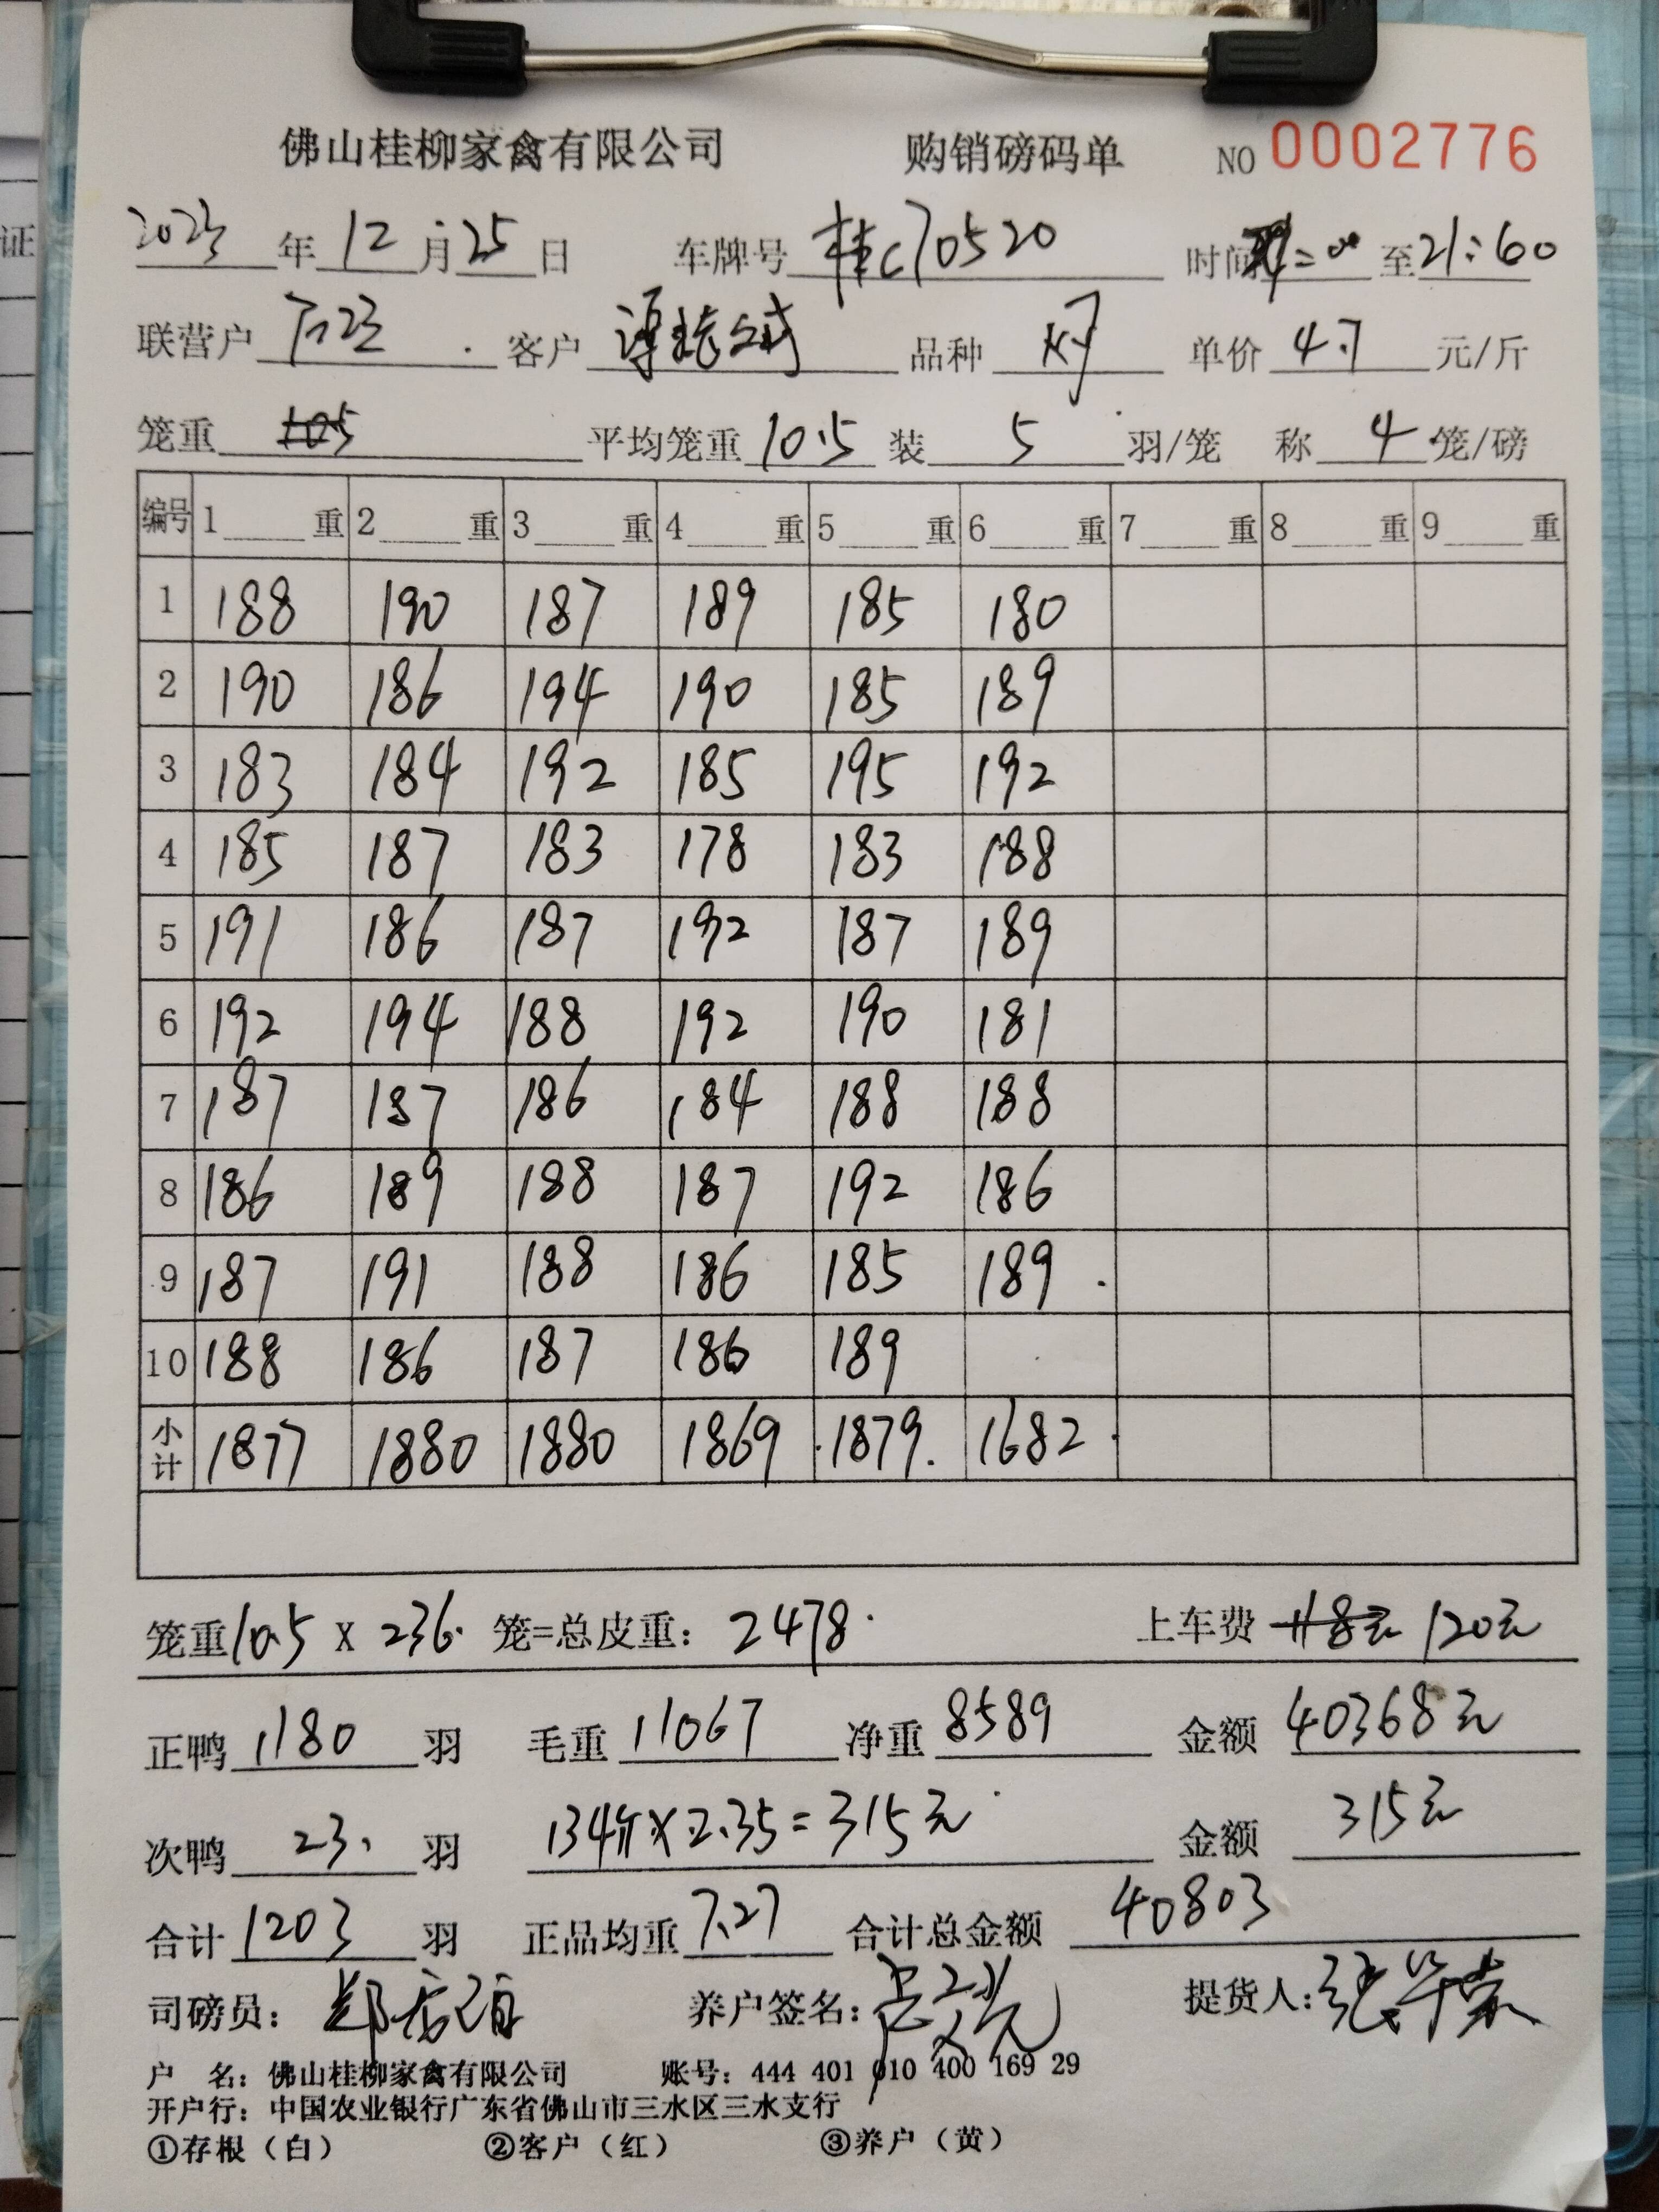 佛山桂柳家禽有限公司 购销磅码单 NO 0002776
2023 年 12 月 25 日 车牌号 桂C70520 时间 :00 至 21:60
联营户 客户 品种 单价 4.7 元/斤
笼重 105 平均笼重 10.5 装 5 羽/笼 称 4 笼/磅
编号 1 重 2 重 3 重 4 重 5 重 6 重 7 重 8 重 9 重
1 188 190 187 189 185 180
2 190 186 194 190 185 189
3 183 184 192 185 195 192
4 185 187 183 178 183 188
5 191 186 187 192 187 189
6 192 194 188 192 190 181
7 187 187 186 184 188 188
8 186 189 188 187 192 186
9 187 191 188 186 185 189
10 188 186 187 186 189
小计 1877 1880 1880 1869 1879 1682
笼重 10.5 X 236 笼=总皮重: 2478 上车费 118元 120元
正鸭 1180 羽 毛重 11067 净重 8589 金额 40368元
次鸭 23 羽 134斤×2.35=315元 金额 315元
合计 1203 羽 正品均重 7.27 合计总金额 40803
司磅员: 养户签名: 提货人: 张华荣
户 名: 佛山桂柳家禽有限公司 账号: 444 401 010 400 169 29
开户行: 中国农业银行广东省佛山市三水区三水支行
①存根(白) ②客户(红) ③养户(黄)
证